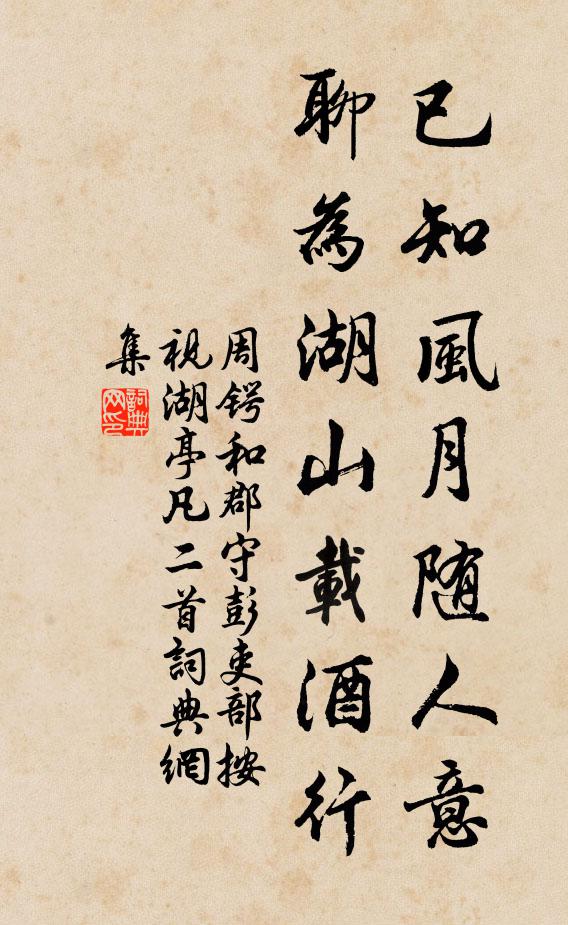 已知風月随人意
聊為湖山載酒行
周锷和郡守彭吏部按
視湖亭凡二首詞典網
集
詞典
网印